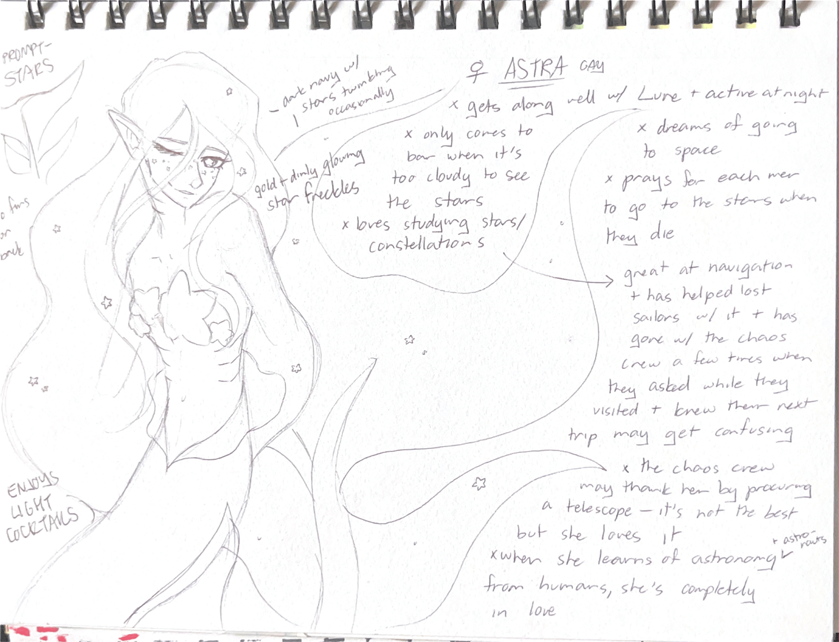 PROMPT-
STARS
- dark navy w/
stars twinkling
occasionally
gold + dimly glowing
star freckles
on
back
ENJOYS
LIGHT
COCKTAILS
♀ ASTRA GAY
x gets along well w/ Lune + active at night
x only comes to
bar when it's
too cloudy to see
the stars
x loves studying stars/
constellations
x dreams of going
to space
x prays for each mer
to go to the stars when
they die
great at navigation
+ has helped lost
sailors w/ it + has
gone w/ the chaos
crew a few times when
they asked while they
visited + knew their next
trip may get confusing
x the chaos crew
may thank her by procuring
a telescope - it's not the best
but she loves it
x when she learns of astronomy + astronauts
from humans, she's completely
in love